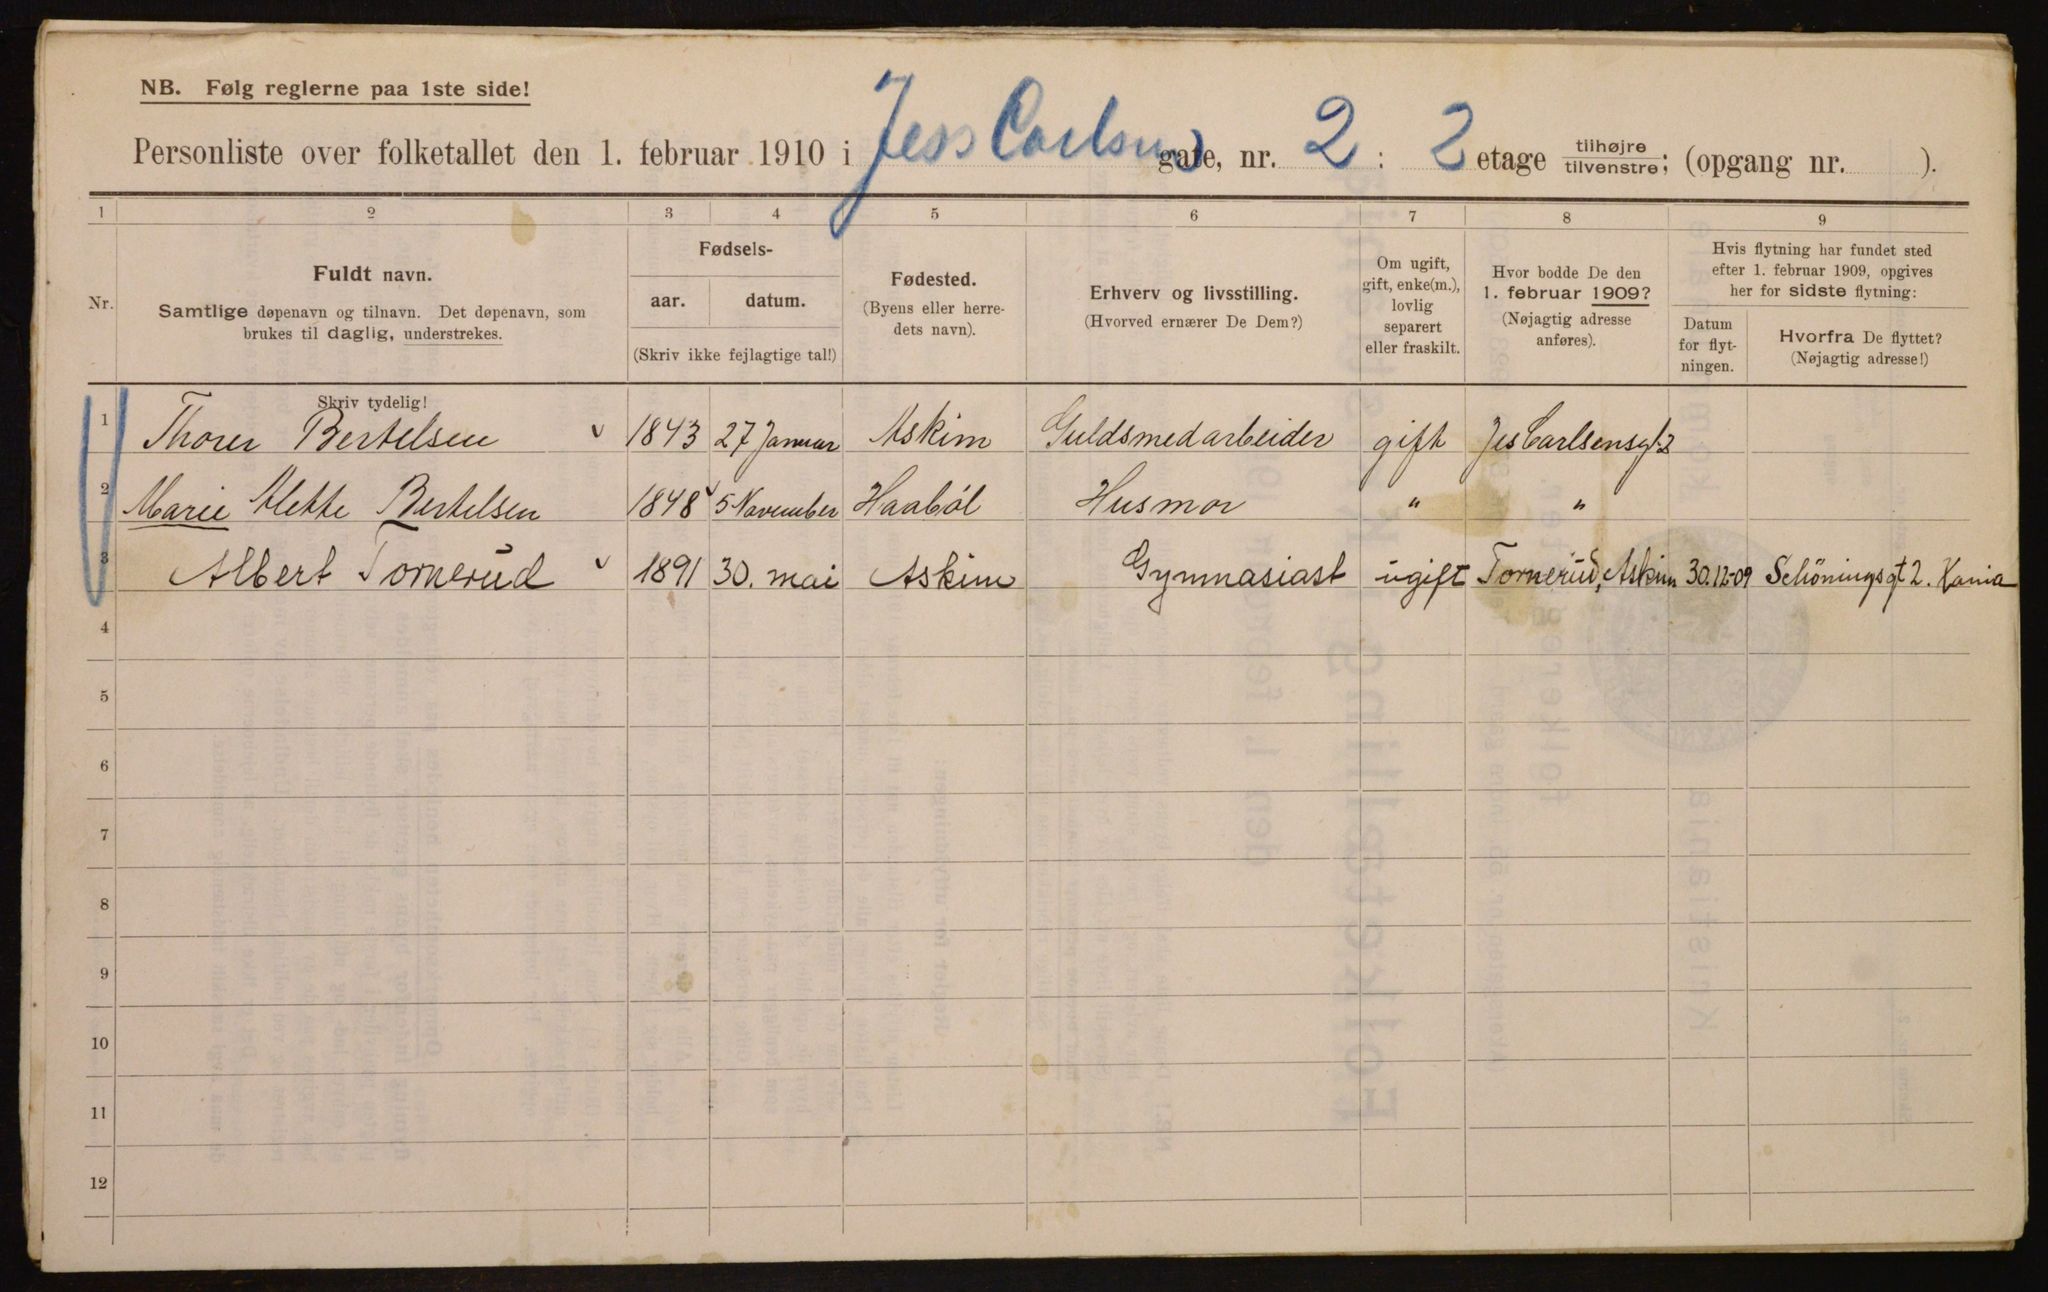 NB. Følg reglerne paa 1ste side!
Personliste over folketallet den 1. februar 1910 i Jess Carlsens gate, nr. 2 : 2 etage tilhøjre tilvenstre; (opgang nr. ).
1 2 3 4 5 6 7 8 9
Nr.
Fuldt navn.
Samtlige døpenavn og tilnavn. Det døpenavn, som
brukes til daglig, understrekes.
Fødsels-
aar. datum.
(Skriv ikke fejlagtige tal!)
Fødested.
(Byens eller herre-
dets navn).
Erhverv og livsstilling.
(Hvorved ernærer De Dem?)
Om ugift,
gift, enke(m.),
lovlig
separert
eller fraskilt.
Hvor bodde De den
1. februar 1909?
(Nøjagtig adresse
anføres).
Hvis flytning har fundet sted
efter 1. februar 1909, opgives
her for sidste flytning:
Datum
for flyt-
ningen.
Hvorfra De flyttet?
(Nøjagtig adresse!)
Skriv tydelig!
1 Thorer Bertelsen 1843 27 Januar Askim Guldsmedarbeider gift Jes Carlsensgt. 2
2 Marie Mette Bertelsen 1848 5 November Haabøl Husmor " "
3 Albert Tornerud 1891 30. mai Askim Gymnasiast ugift Tornerud, Askim 30.12-09 Schöningsgt 2. Kania
4
5
6
7
8
9
10
11
12